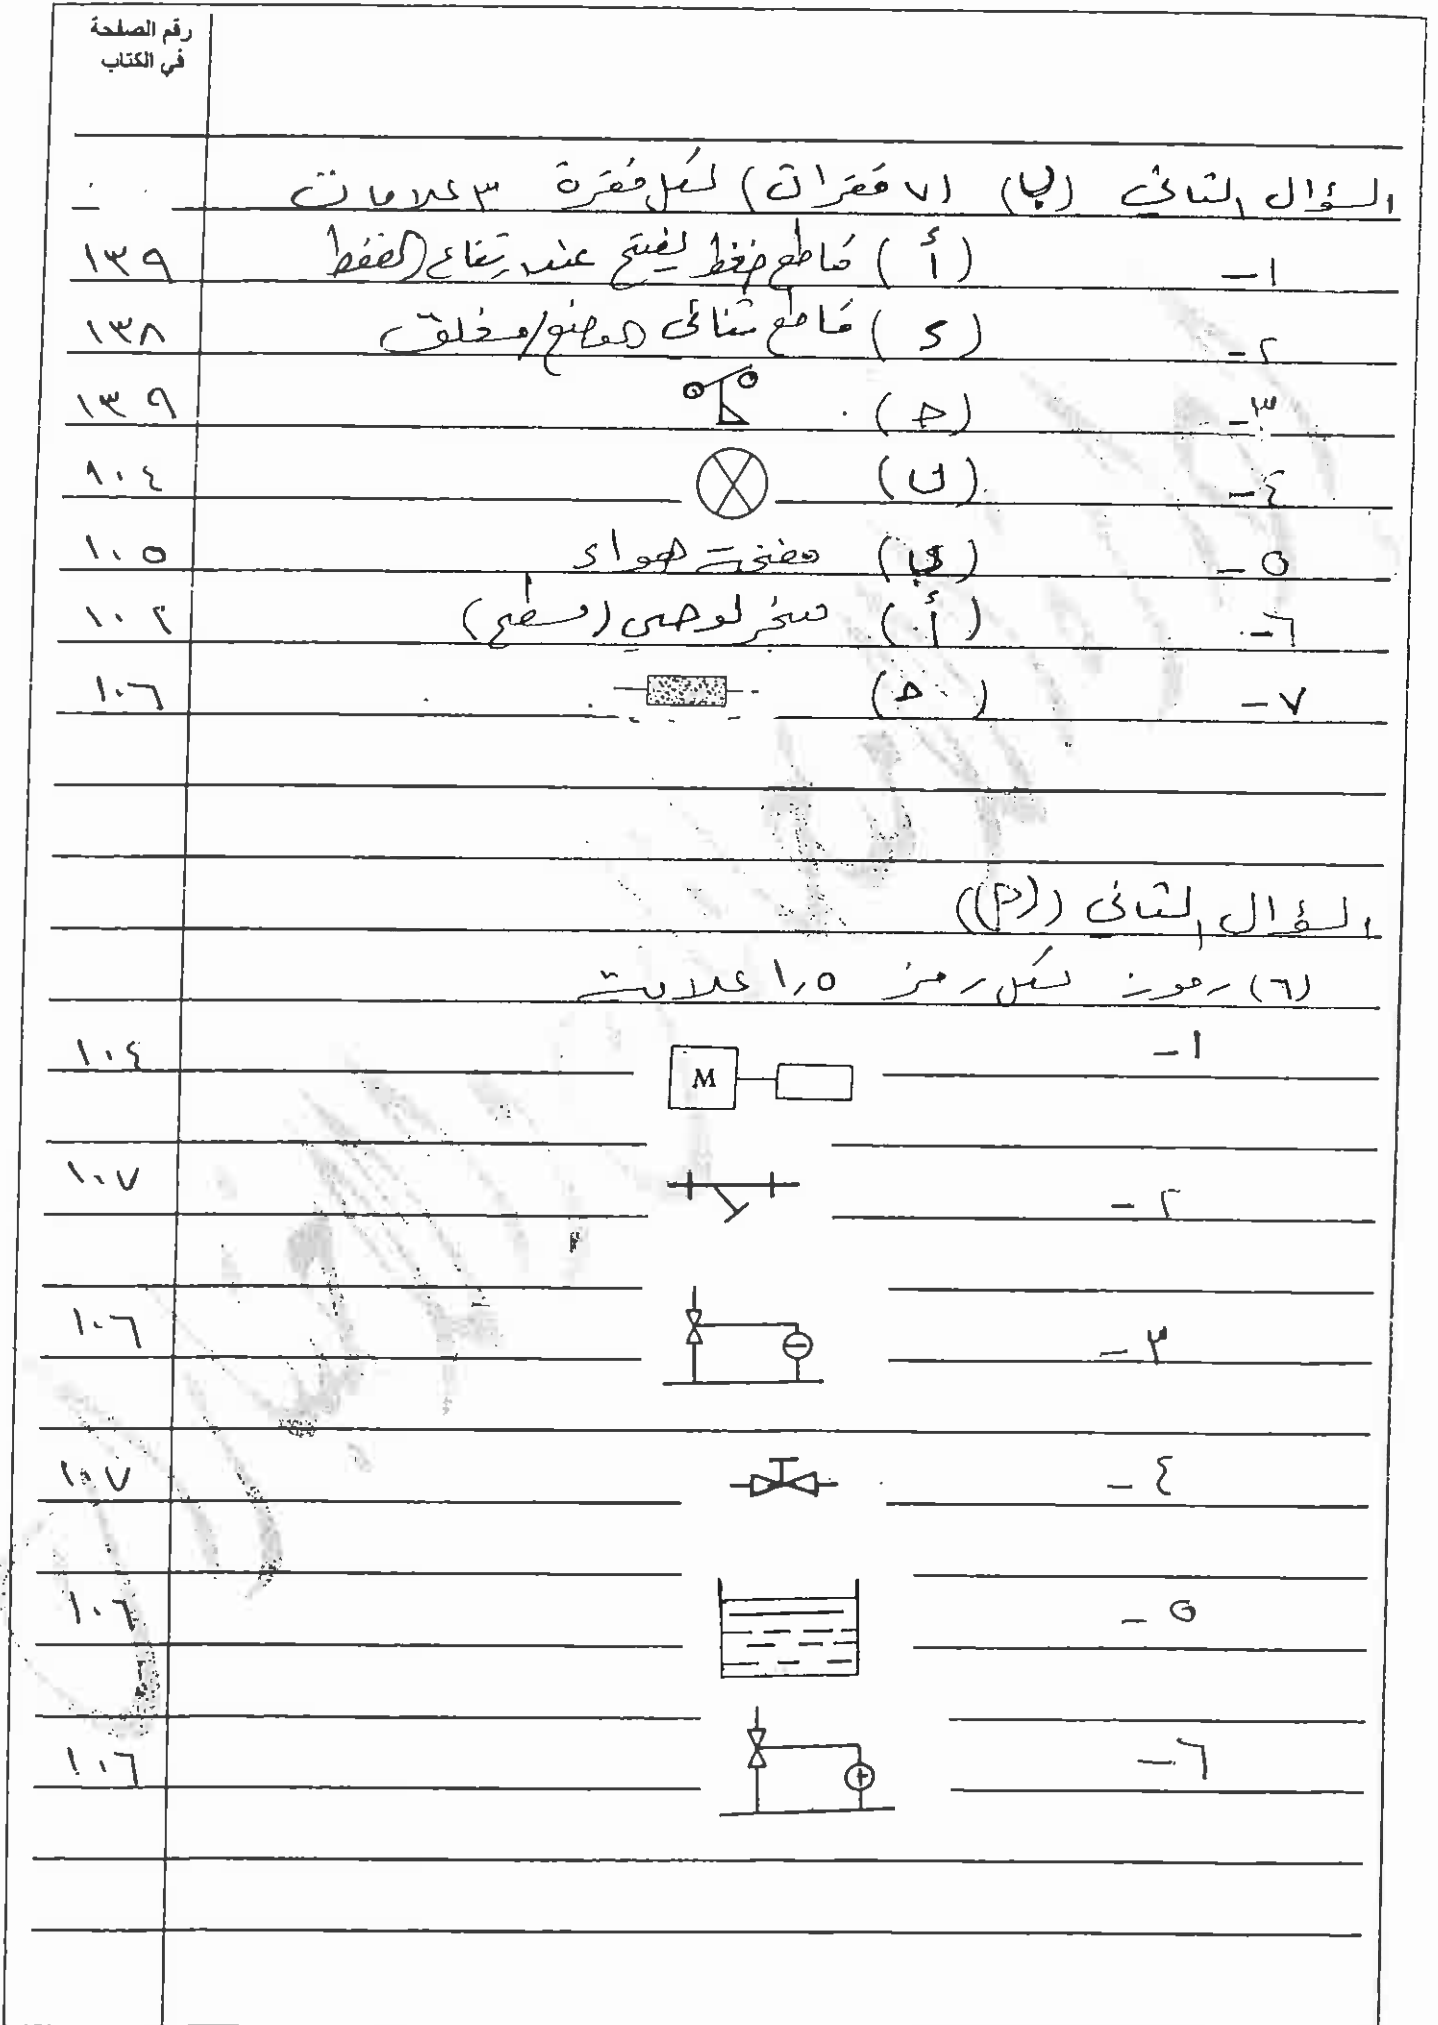 رقم الصفحة
في الكتاب
السؤال الثاني (ب) (٧ فقرات) لكل فقرة ٣ علامات
١- (أ) قاطع ضغط يفتح عند ارتفاع الضغط ١٣٩
٢- (د) قاطع ثنائي الوضع/مغلق ١٣٨
٣- (ج) ١٣٩
٤- (ب) ١٠٤
٥- (ب) مضخة هواء ١٠٥
٦- (أ) مبخر لوحي (مسطح) ١٠٢
٧- (ج) ١٠٦
السؤال الثاني ((أ))
(٦) رموز لكل رمز ١,٥ علامة
١- M ١٠٤
٢- ١٠٧
٣- ١٠٦
٤- ١٠٧
٥- ١٠٦
٦- ١٠٦